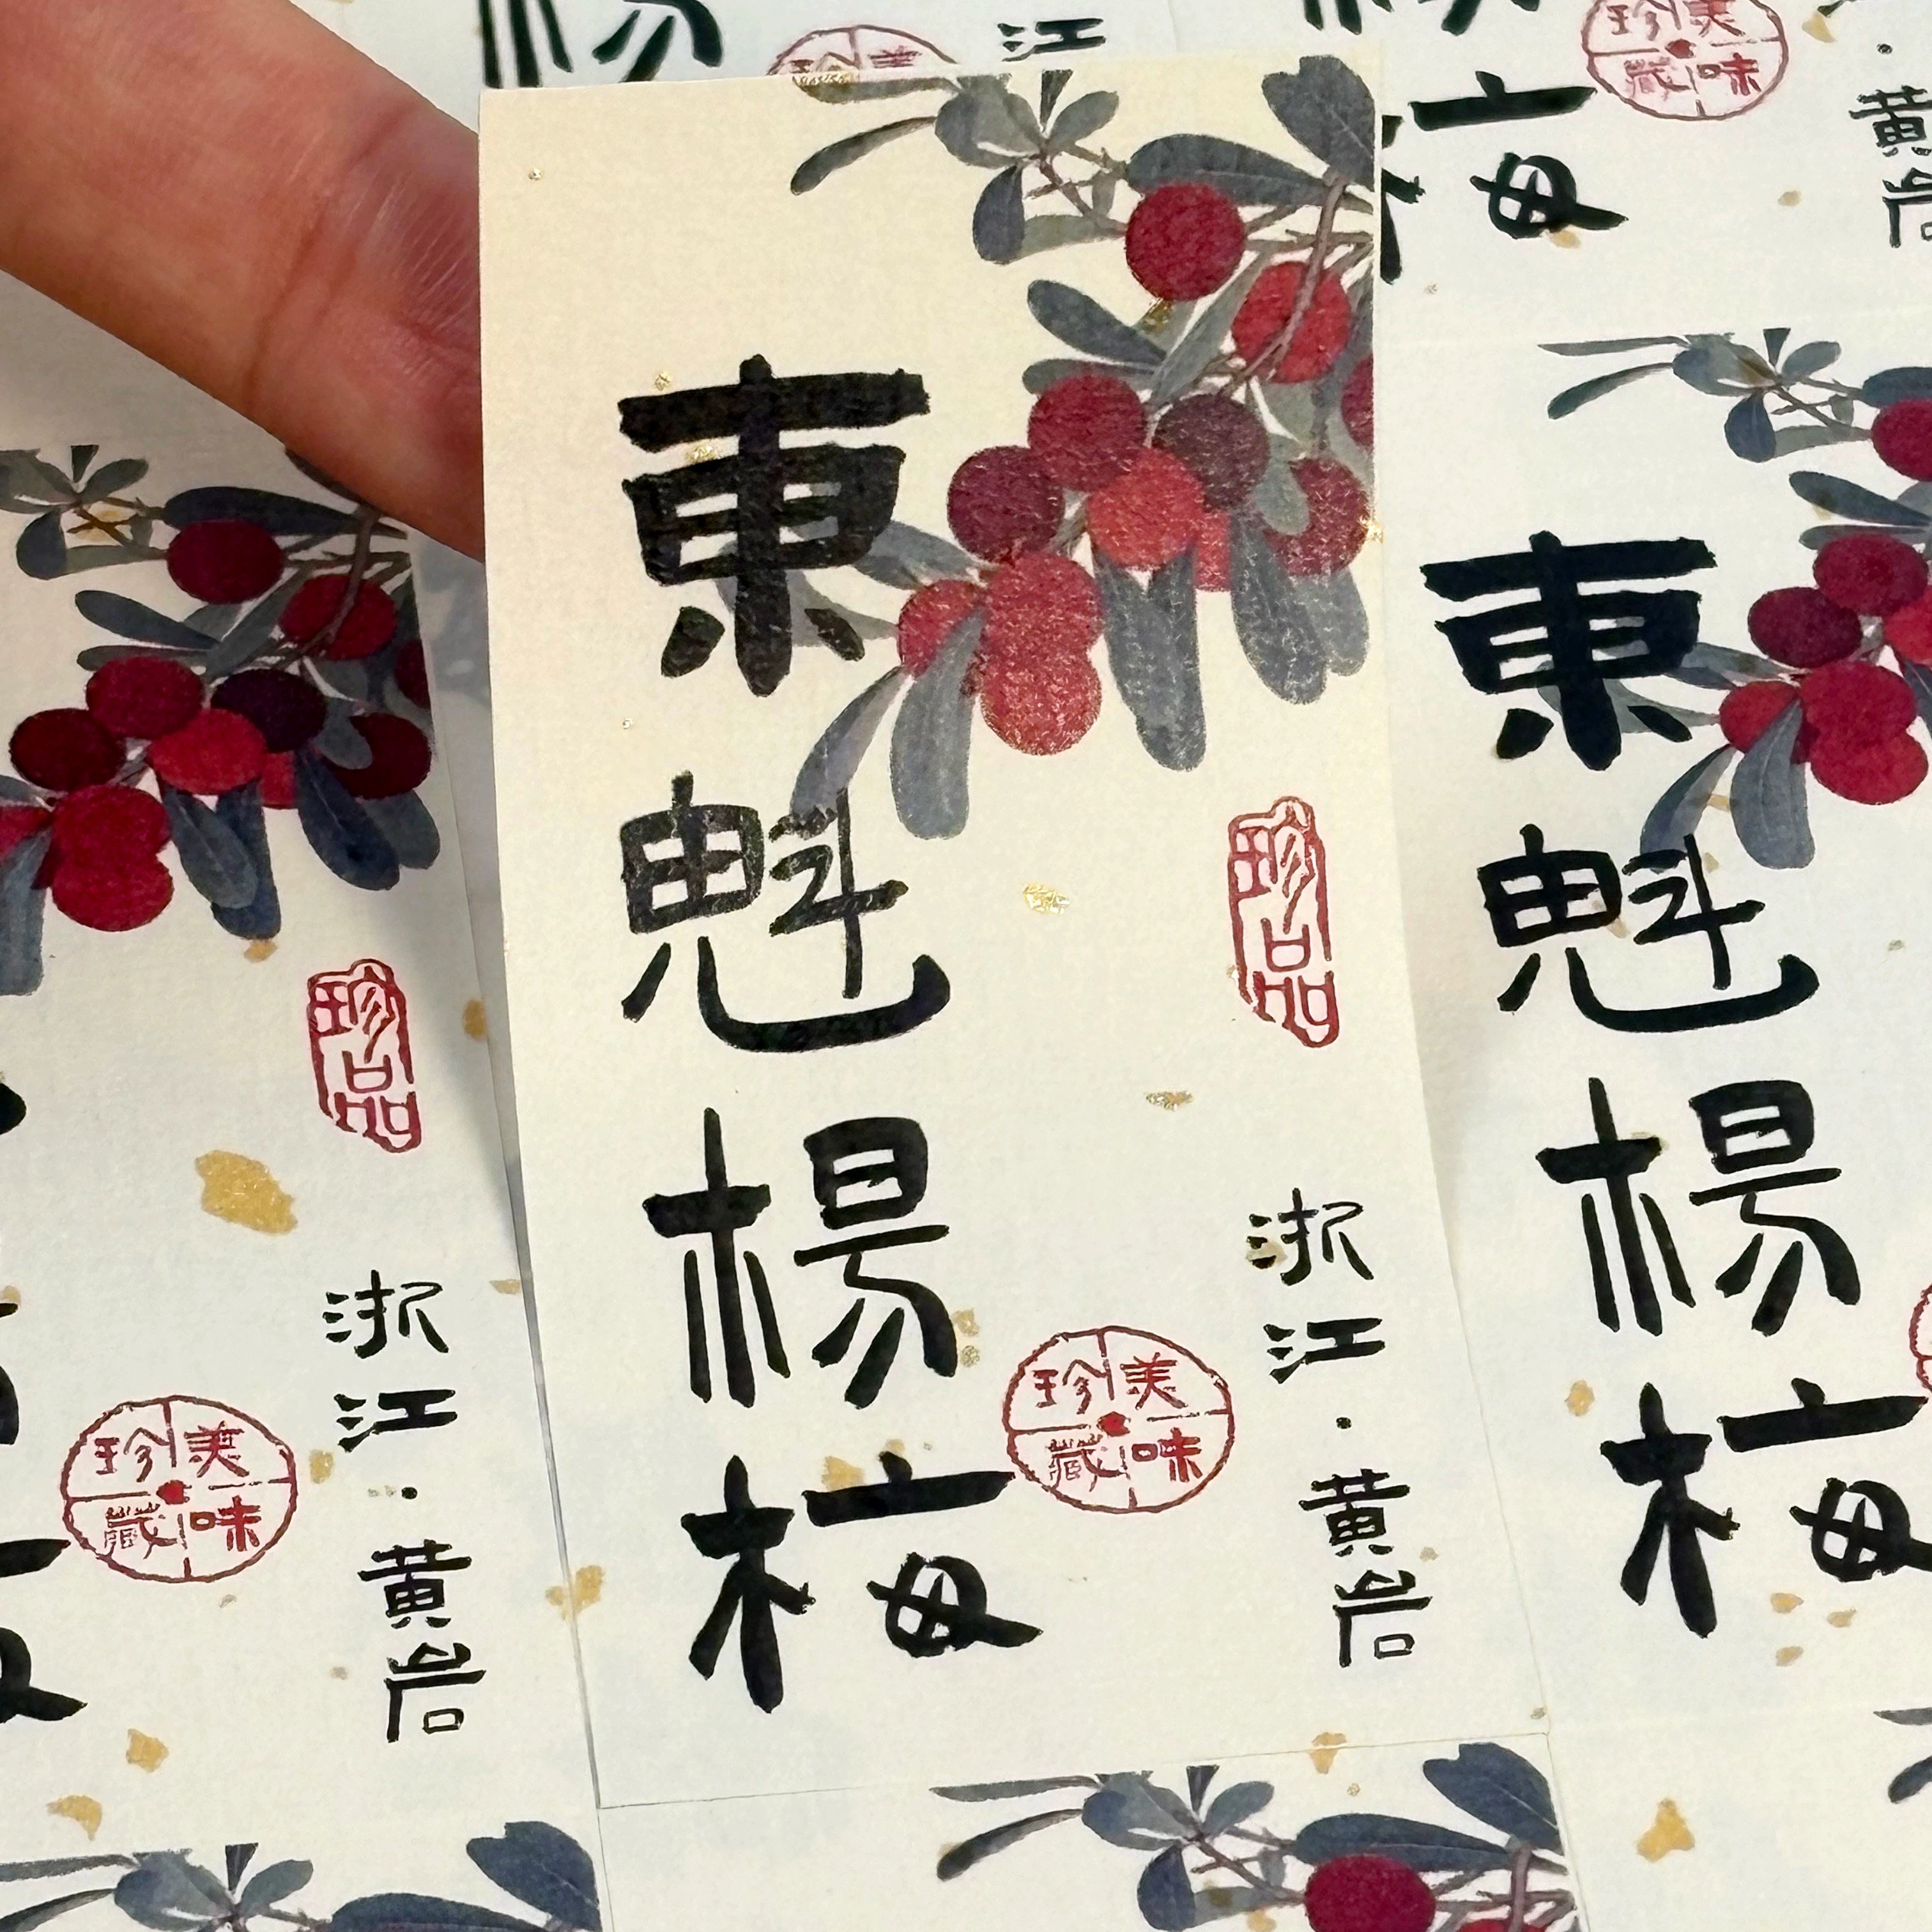 東魁楊梅
珍品
浙江·黄岩
美味珍藏
珍品
浙江·黄岩
美味珍藏
東魁楊梅
江
美味珍藏
梅
黄岩